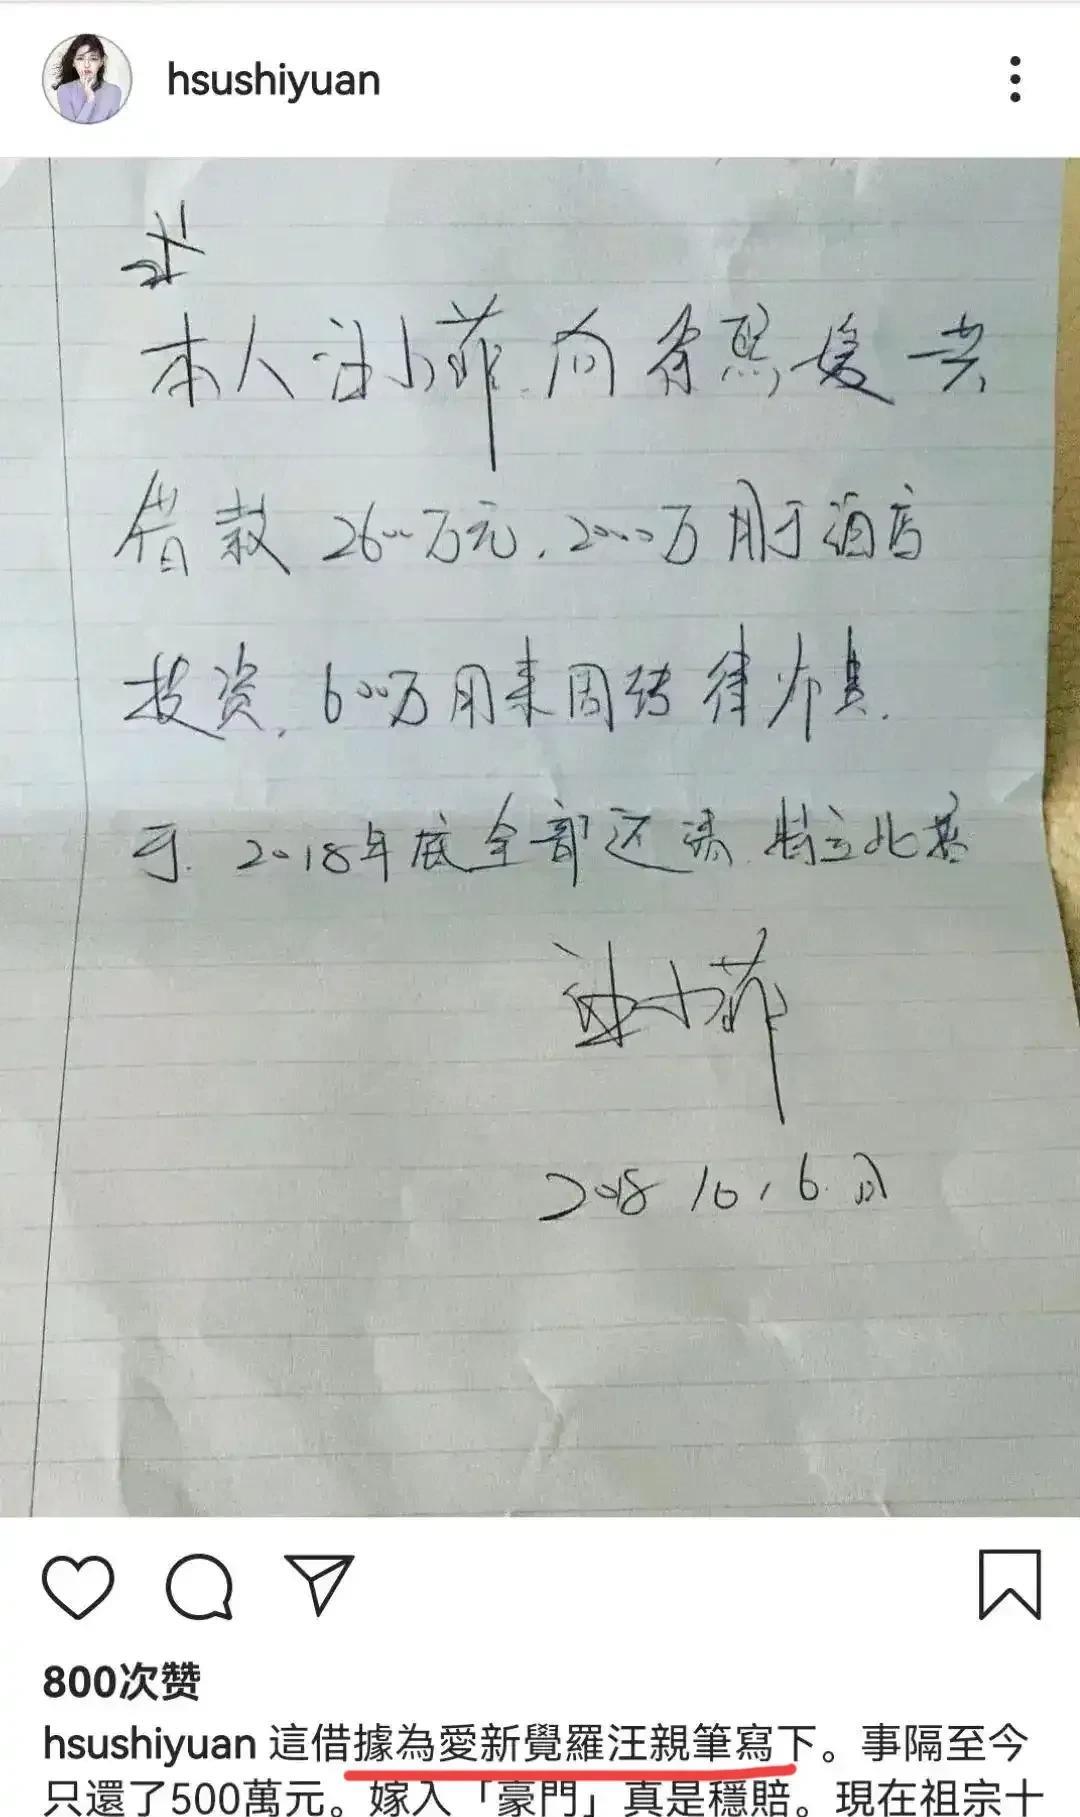 hsushiyuan
本人汪小菲向徐熙媛共
借款2600万元,2000万用于酒店
投资,600万用来周转律师费.
于.2018年底全部还清.特立此据
汪小菲
2018.10.6.日
800次赞
hsushiyuan 這借據為愛新覺羅汪親筆寫下。事隔至今
只還了500萬元。嫁入「豪門」真是穩賠。現在祖宗十